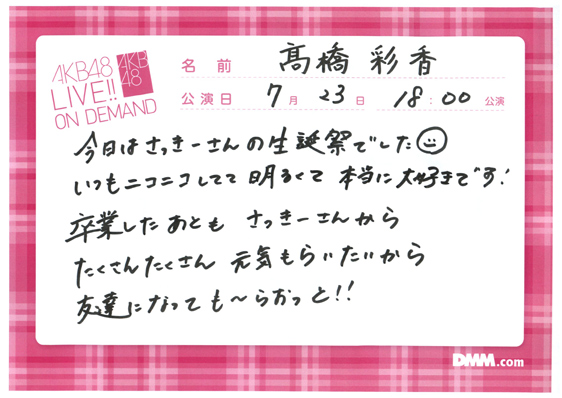 AKB48
LIVE!!
ON DEMAND
AKB
48
名前 髙橋彩香
公演日 7月23日 18:00公演
今日はさっきーさんの生誕祭でした☺
いつもニコニコしてて明るくて本当に大好きです!
卒業したあとも さっきーさんから
たくさんたくさん元気もらいたいから
友達になっても〜らおっと!!
DMM.com